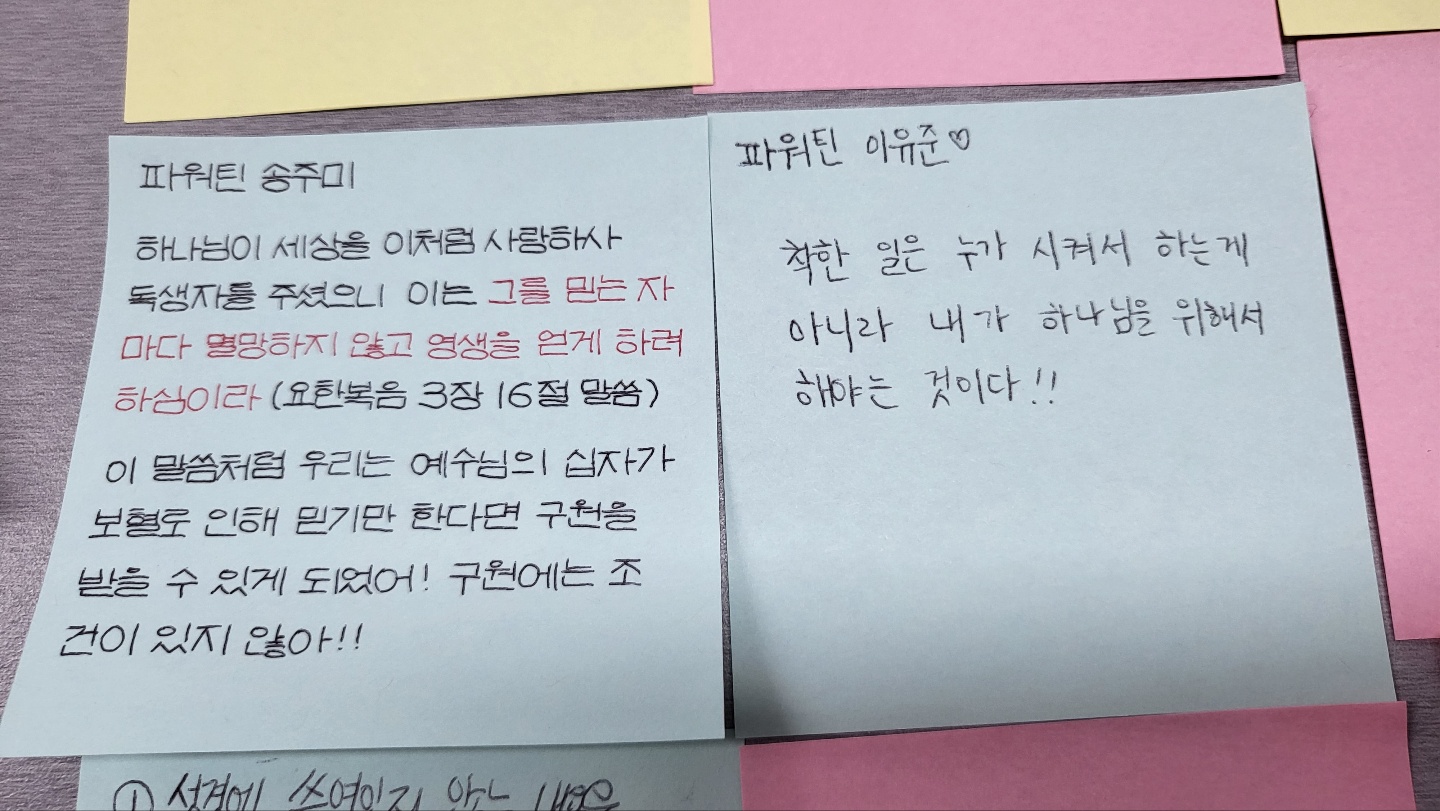 파워틴 송주미
하나님이 세상을 이처럼 사랑하사
독생자를 주셨으니 이는 그를 믿는 자
마다 멸망하지 않고 영생을 얻게 하려
하심이라 (요한복음 3장 16절 말씀)
이 말씀처럼 우리는 예수님의 십자가
보혈로 인해 믿기만 한다면 구원을
받을 수 있게 되었어! 구원에는 조
건이 있지 않아!!
파워틴 이유준♡
착한 일은 누가 시켜서 하는게
아니라 내가 하나님을 위해서
해야는 것이다!!
① 성경에